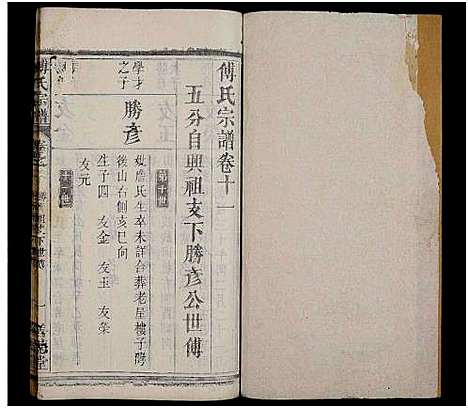 傅氏宗譜卷十一
五分自興祖支下勝彥公世傳
第十世
學才之子
勝彥
娰詹氏生卒未詳合葬老屋樓子塆
後山右側亥巳向
生子四 友金 友玉 友榮
友元
十一世
傅氏宗譜